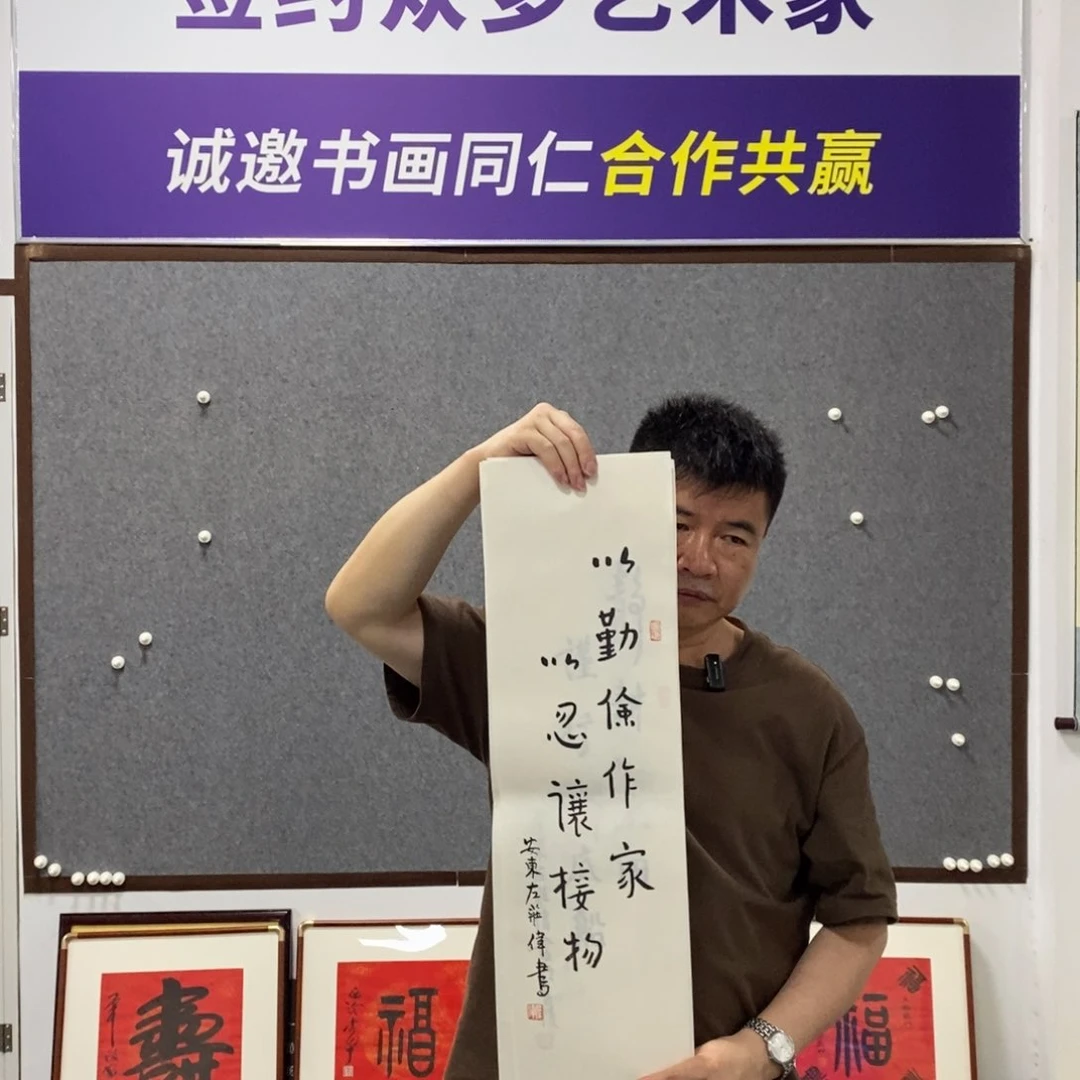 签约众多艺术家
诚邀书画同仁合作共赢
以勤俭作家
以忍讓接物
安東左莊偉書
壽
福
福